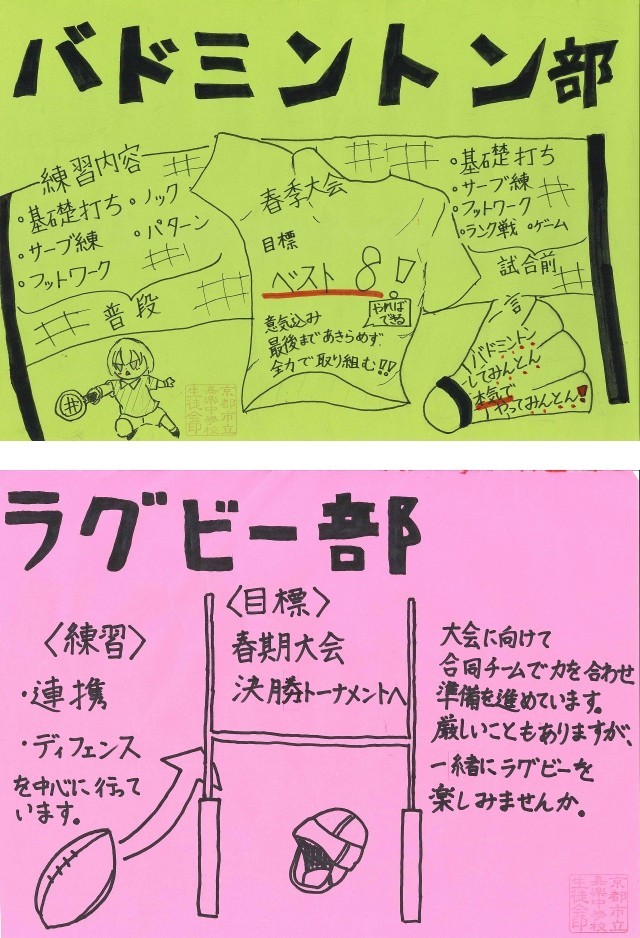 バドミントン部
練習内容
・基礎打ち ・ノック
・サーブ練 ・パターン
・フットワーク
普段
春季大会
目標
ベスト8!
やれば
できる
意気込み
最後まであきらめず
全力で取り組む!!
・基礎打ち
・サーブ練
・フットワーク
・ランク戦 ・ゲーム
試合前
一言
バドミントン
してみんとん
本気で
やってみんとん!
京都市立
嘉楽中学校
生徒会印
ラグビー部
〈練習〉
・連携
・ディフェンス
を中心に行って
います。
〈目標〉
春期大会
決勝トーナメントへ
大会に向けて
合同チームで力を合わせ
準備を進めています。
厳しいこともありますが、
一緒にラグビーを
楽しみませんか。
京都市立
嘉楽中学校
生徒会印